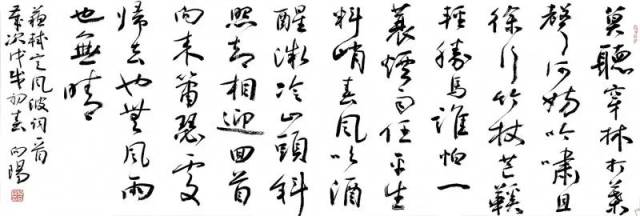 莫聽穿林打葉
聲何妨吟嘯且
徐行竹杖芒鞵
輕勝馬誰怕一
蓑煙雨任平生
料峭春風吹酒
醒微冷山頭斜
照却相迎回首
向来蕭瑟處
歸去也無風雨
也無晴
蘇軾定风波词一首
歲次甲午初春 向陽